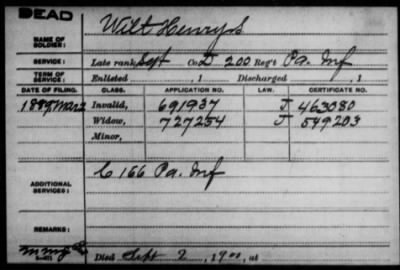 DEAD
Wilt Henry S
NAME OF SOLDIER:
SERVICE: Late rank, Sept Co. D 200 Reg't Pa. Inf
TERM OF SERVICE: Enlisted , 1 Discharged , 1
DATE OF FILING. CLASS. APPLICATION NO. LAW. CERTIFICATE NO.
1889, Mar 2 Invalid, 691937 J 463080
Widow, 727254 J 549203
Minor,
C 166 Pa. Inf
ADDITIONAL SERVICES:
REMARKS:
Died Sept 2, 1900, at